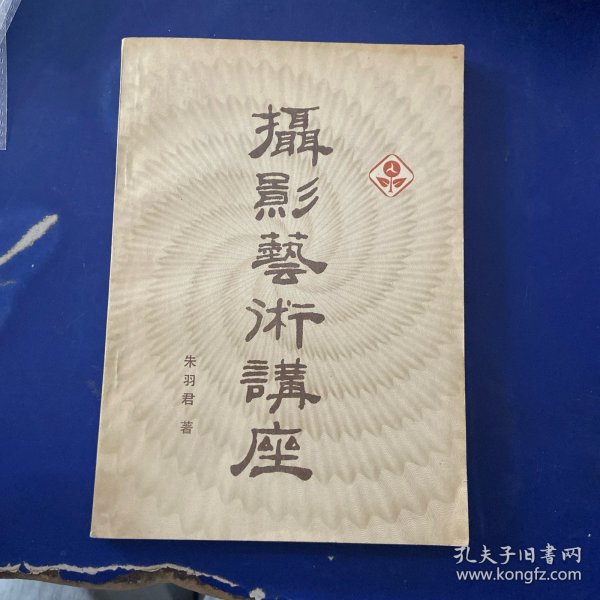 攝影藝術講座
朱羽君 著
孔夫子旧书网
www.kongfz.com